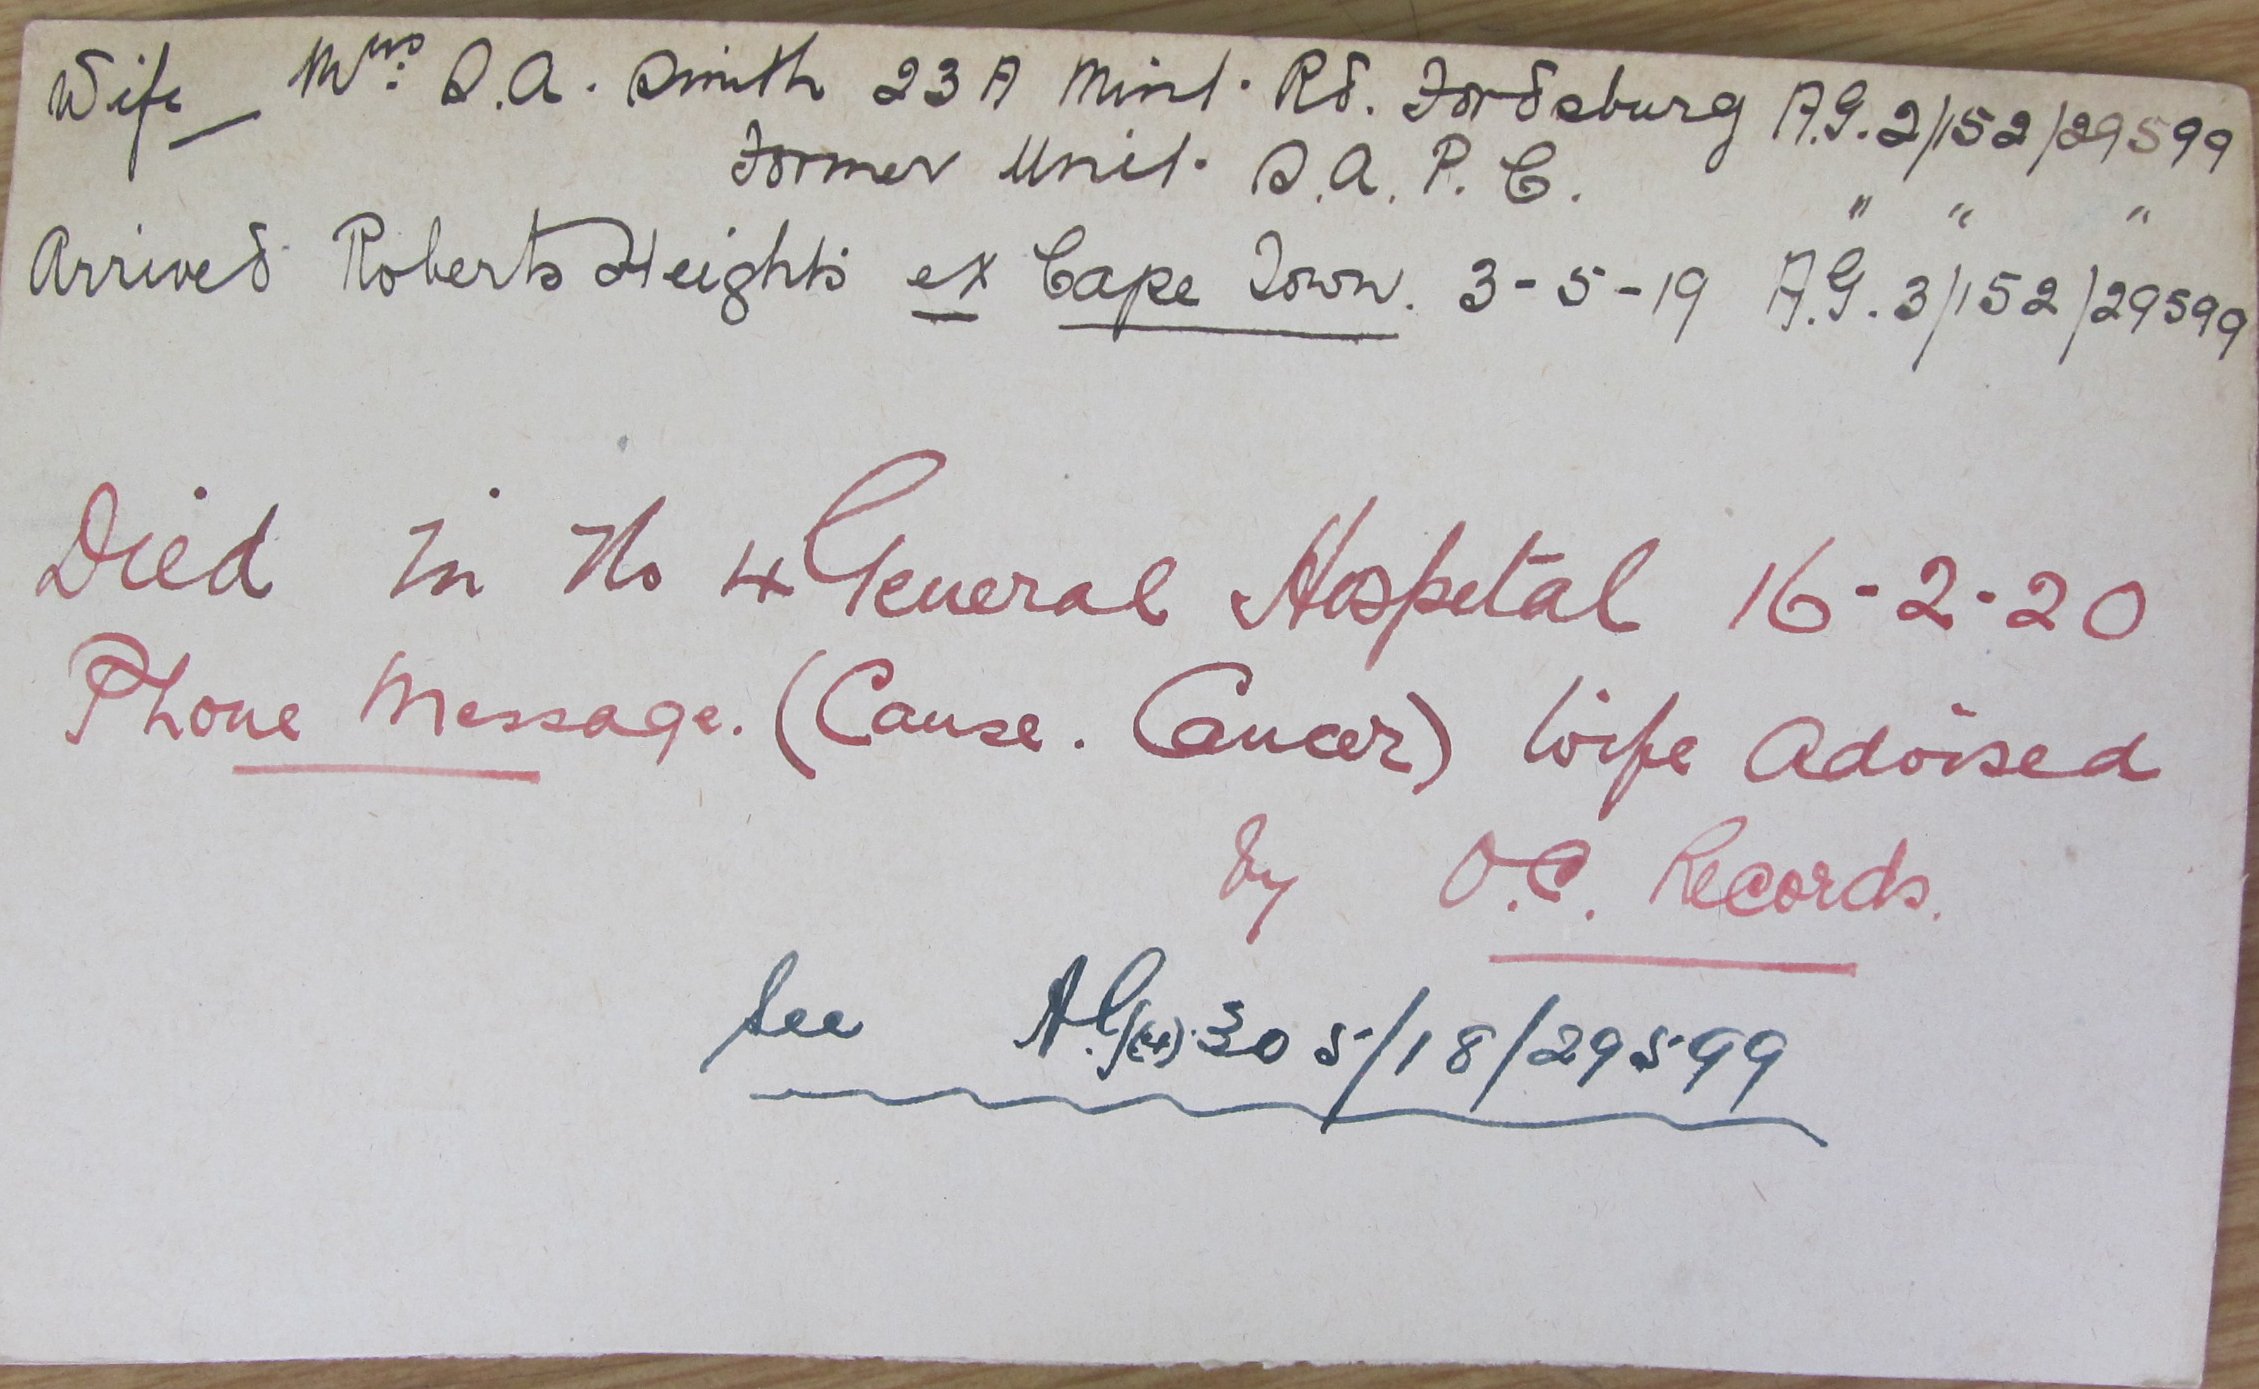 Wife – Mrs. S.A. Smith 23A Mint Rd. Fordsburg A.G.2/152/29599
Former Unit S.A.P.C. " " "
Arrived Roberts Heights ex Cape Town. 3-5-19 A.G.3/152/29599
Died in No 4 General Hospital 16-2-20
Phone Message. (Cause. Cancer) Wife Advised
by O.C. Records.
See A.G(4) 305/18/29599